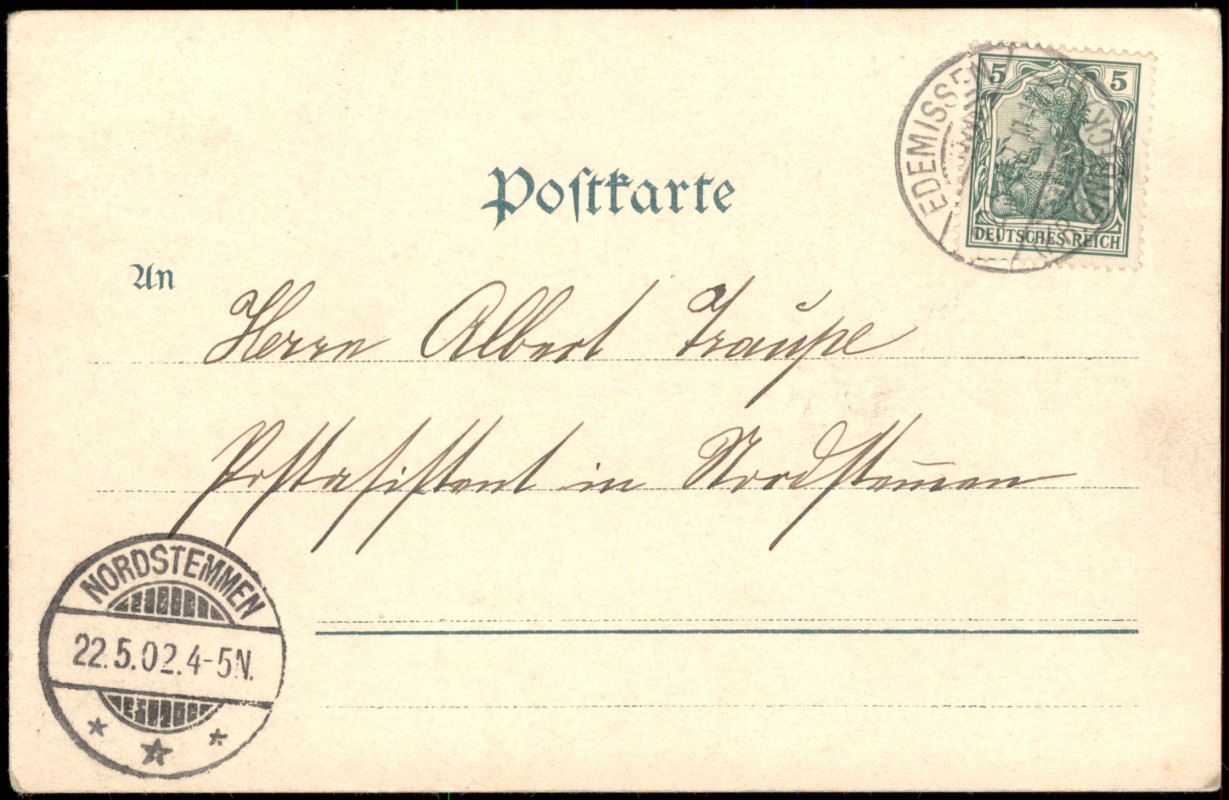 EDEMISSEN
5 5
DEUTSCHES REICH
Postkarte
An
Herrn Albert Traupe
Postasistent in Nordstem̅en
NORDSTEMMEN
22.5.02.4-5N.